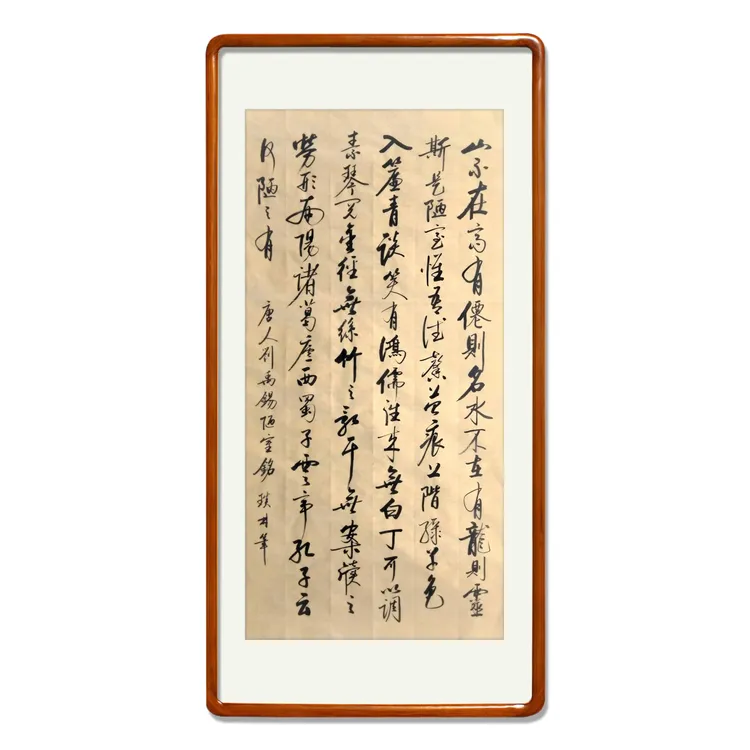 山不在高有僊則名水不在有龍則靈
斯是陋室惟吾德馨苔痕上階綠草色
入簾青談笑有鴻儒往來無白丁可以調
素琴閱金經無絲竹之亂耳無案牘之
勞形南陽諸葛廬西蜀子雲亭孔子云
何陋之有 唐人劉禹錫陋室銘